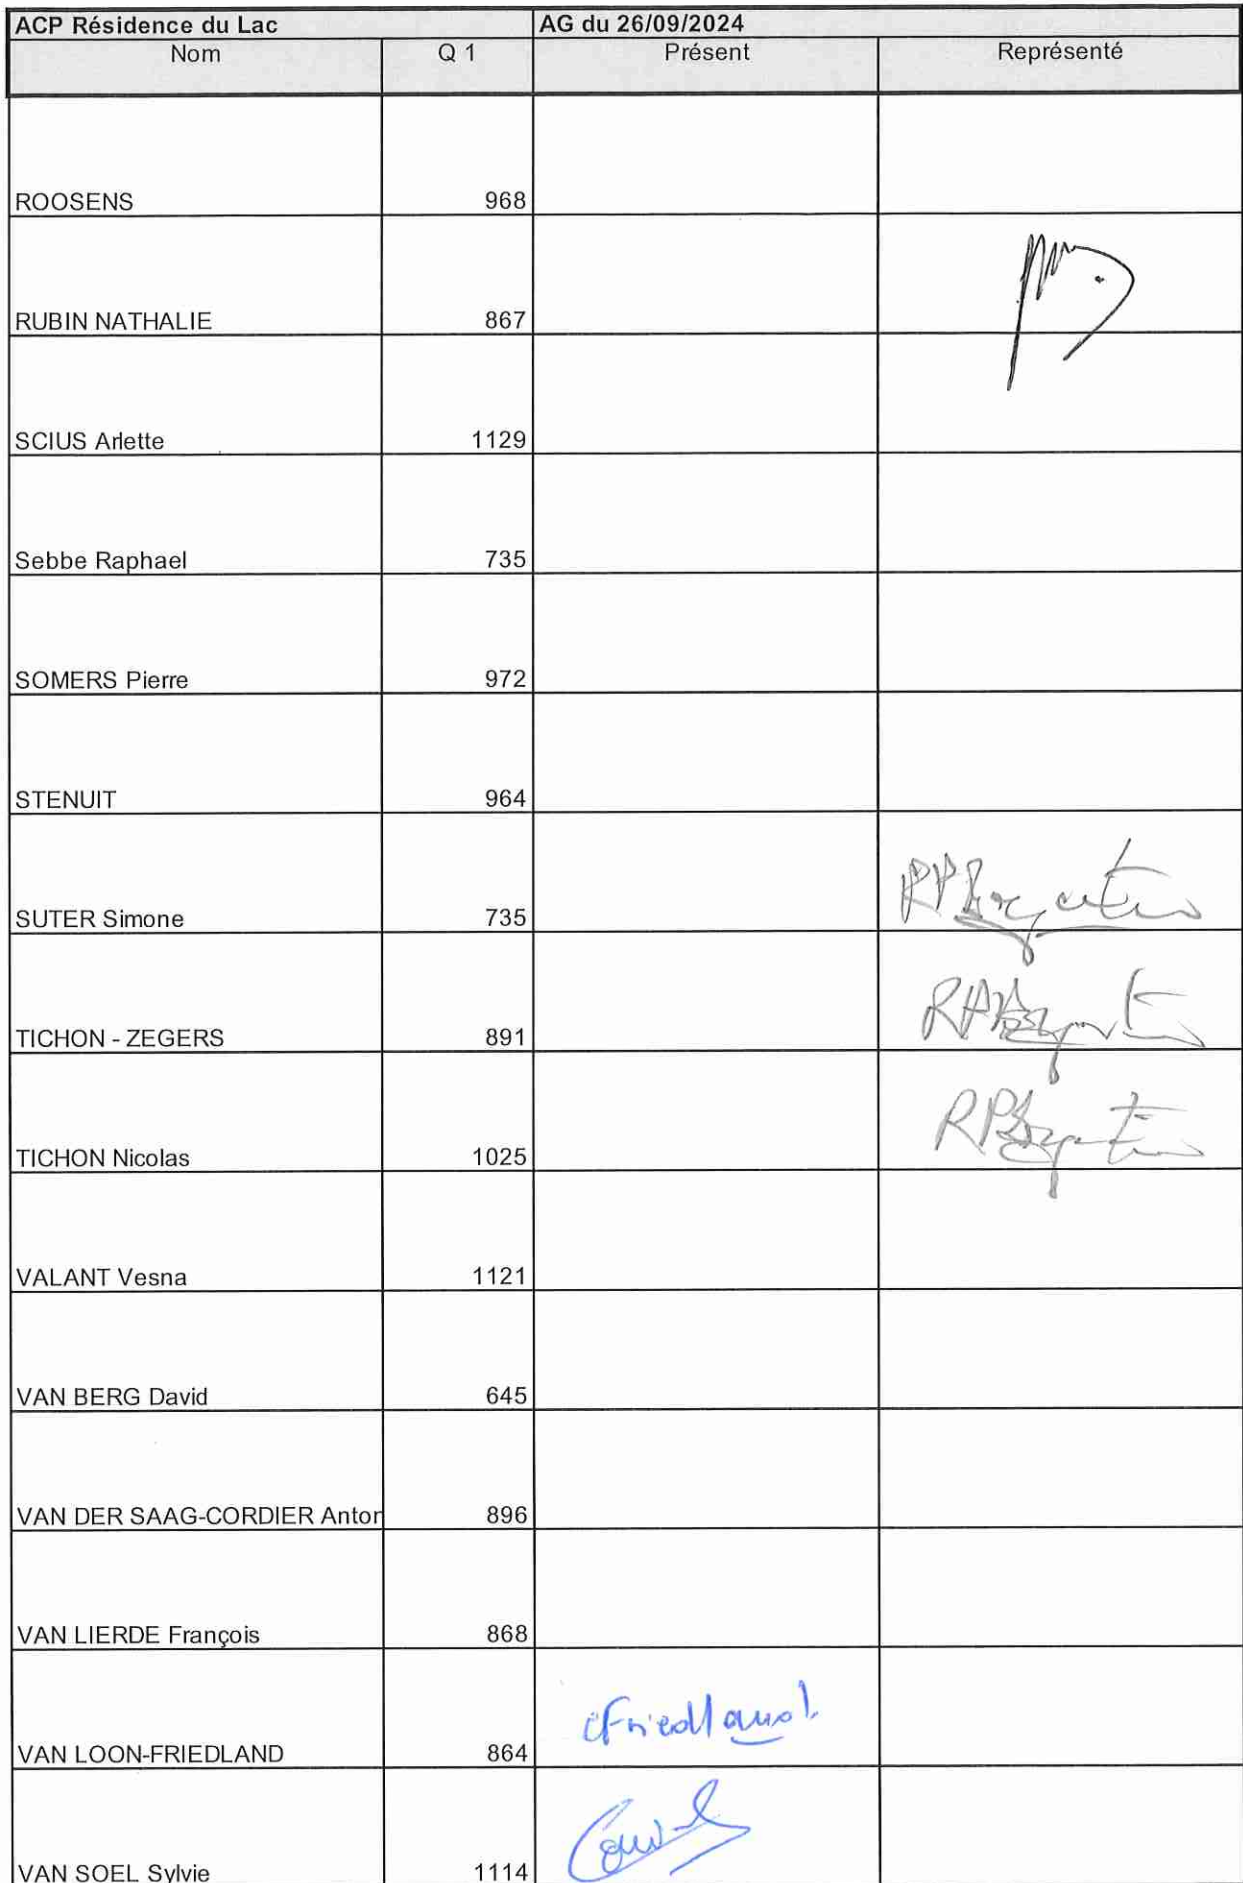 ACP Résidence du Lac AG du 26/09/2024
Nom Q 1 Présent Représenté
ROOSENS 968
RUBIN NATHALIE 867
SCIUS Arlette 1129
Sebbe Raphael 735
SOMERS Pierre 972
STENUIT 964
SUTER Simone 735
TICHON - ZEGERS 891
TICHON Nicolas 1025
VALANT Vesna 1121
VAN BERG David 645
VAN DER SAAG-CORDIER Anton 896
VAN LIERDE François 868
VAN LOON-FRIEDLAND 864 Friedland
VAN SOEL Sylvie 1114